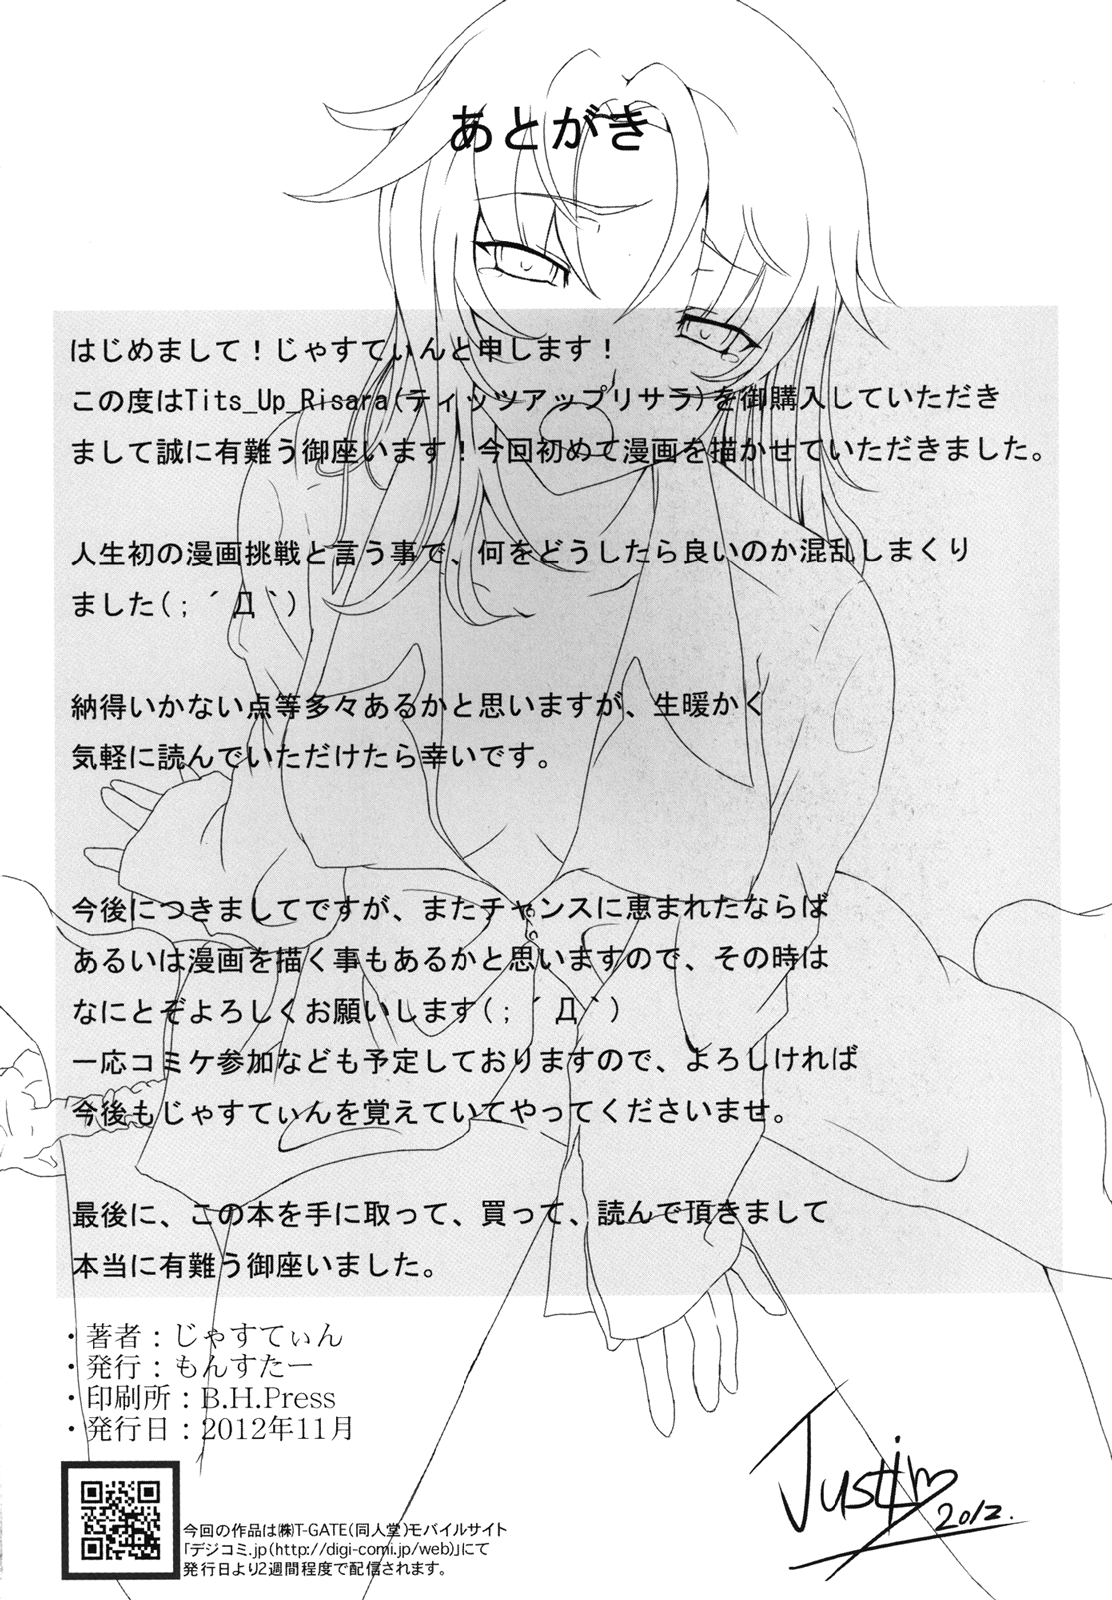 あとがき
はじめまして！じゃすてぃんと申します！
この度はTits_Up_Risara(ティッツアップリサラ)を御購入していただき
まして誠に有難う御座います！今回初めて漫画を描かせていただきました。
人生初の漫画挑戦と言う事で、何をどうしたら良いのか混乱しまくり
ました(；´Д｀)
納得いかない点等多々あるかと思いますが、生暖かく
気軽に読んでいただけたら幸いです。
今後につきましてですが、またチャンスに恵まれたならば
あるいは漫画を描く事もあるかと思いますので、その時は
なにとぞよろしくお願いします(；´Д｀)
一応コミケ参加なども予定しておりますので、よろしければ
今後もじゃすてぃんを覚えていてやってくださいませ。
最後に、この本を手に取って、買って、読んで頂きまして
本当に有難う御座いました。
・著者：じゃすてぃん
・発行：もんすたー
・印刷所：B.H.Press
・発行日：2012年11月
今回の作品は㈱T-GATE(同人堂)モバイルサイト
「デジコミ.jp(http://digi-comi.jp/web)」にて
発行日より2週間程度で配信されます。
Justin
2012.